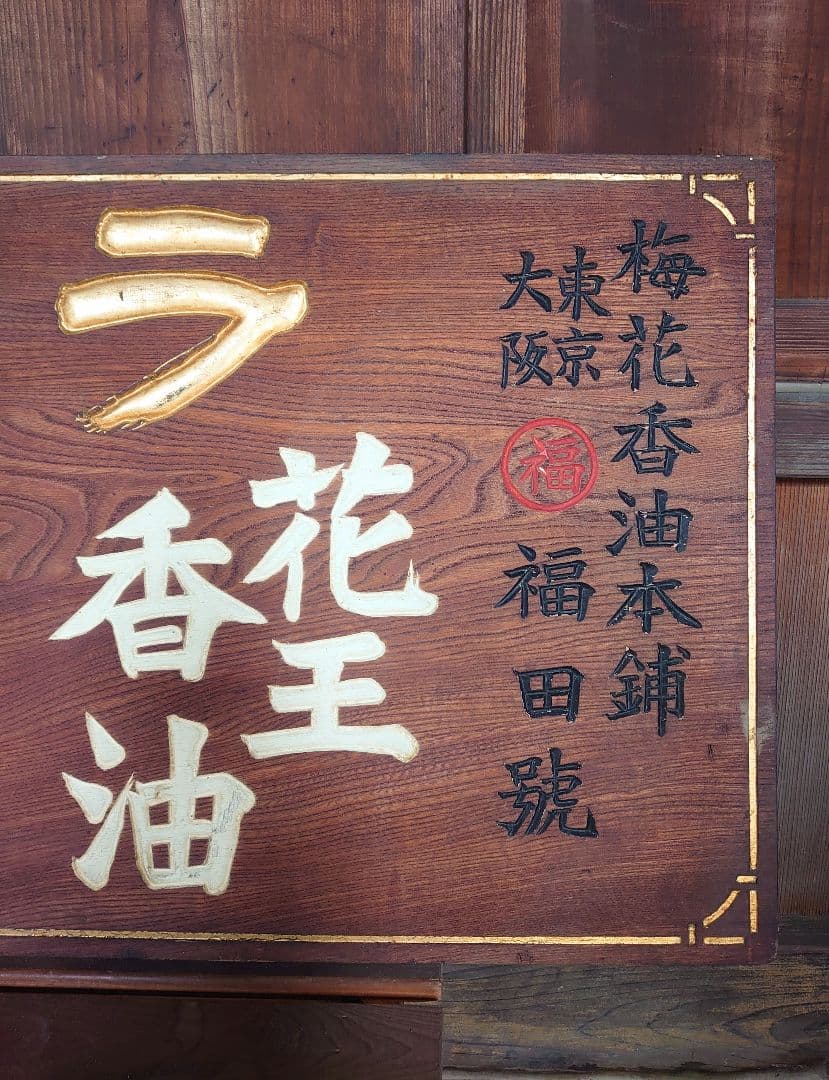 梅花香油本鋪
東京
大阪
福
福田號
ラ
花王
香油